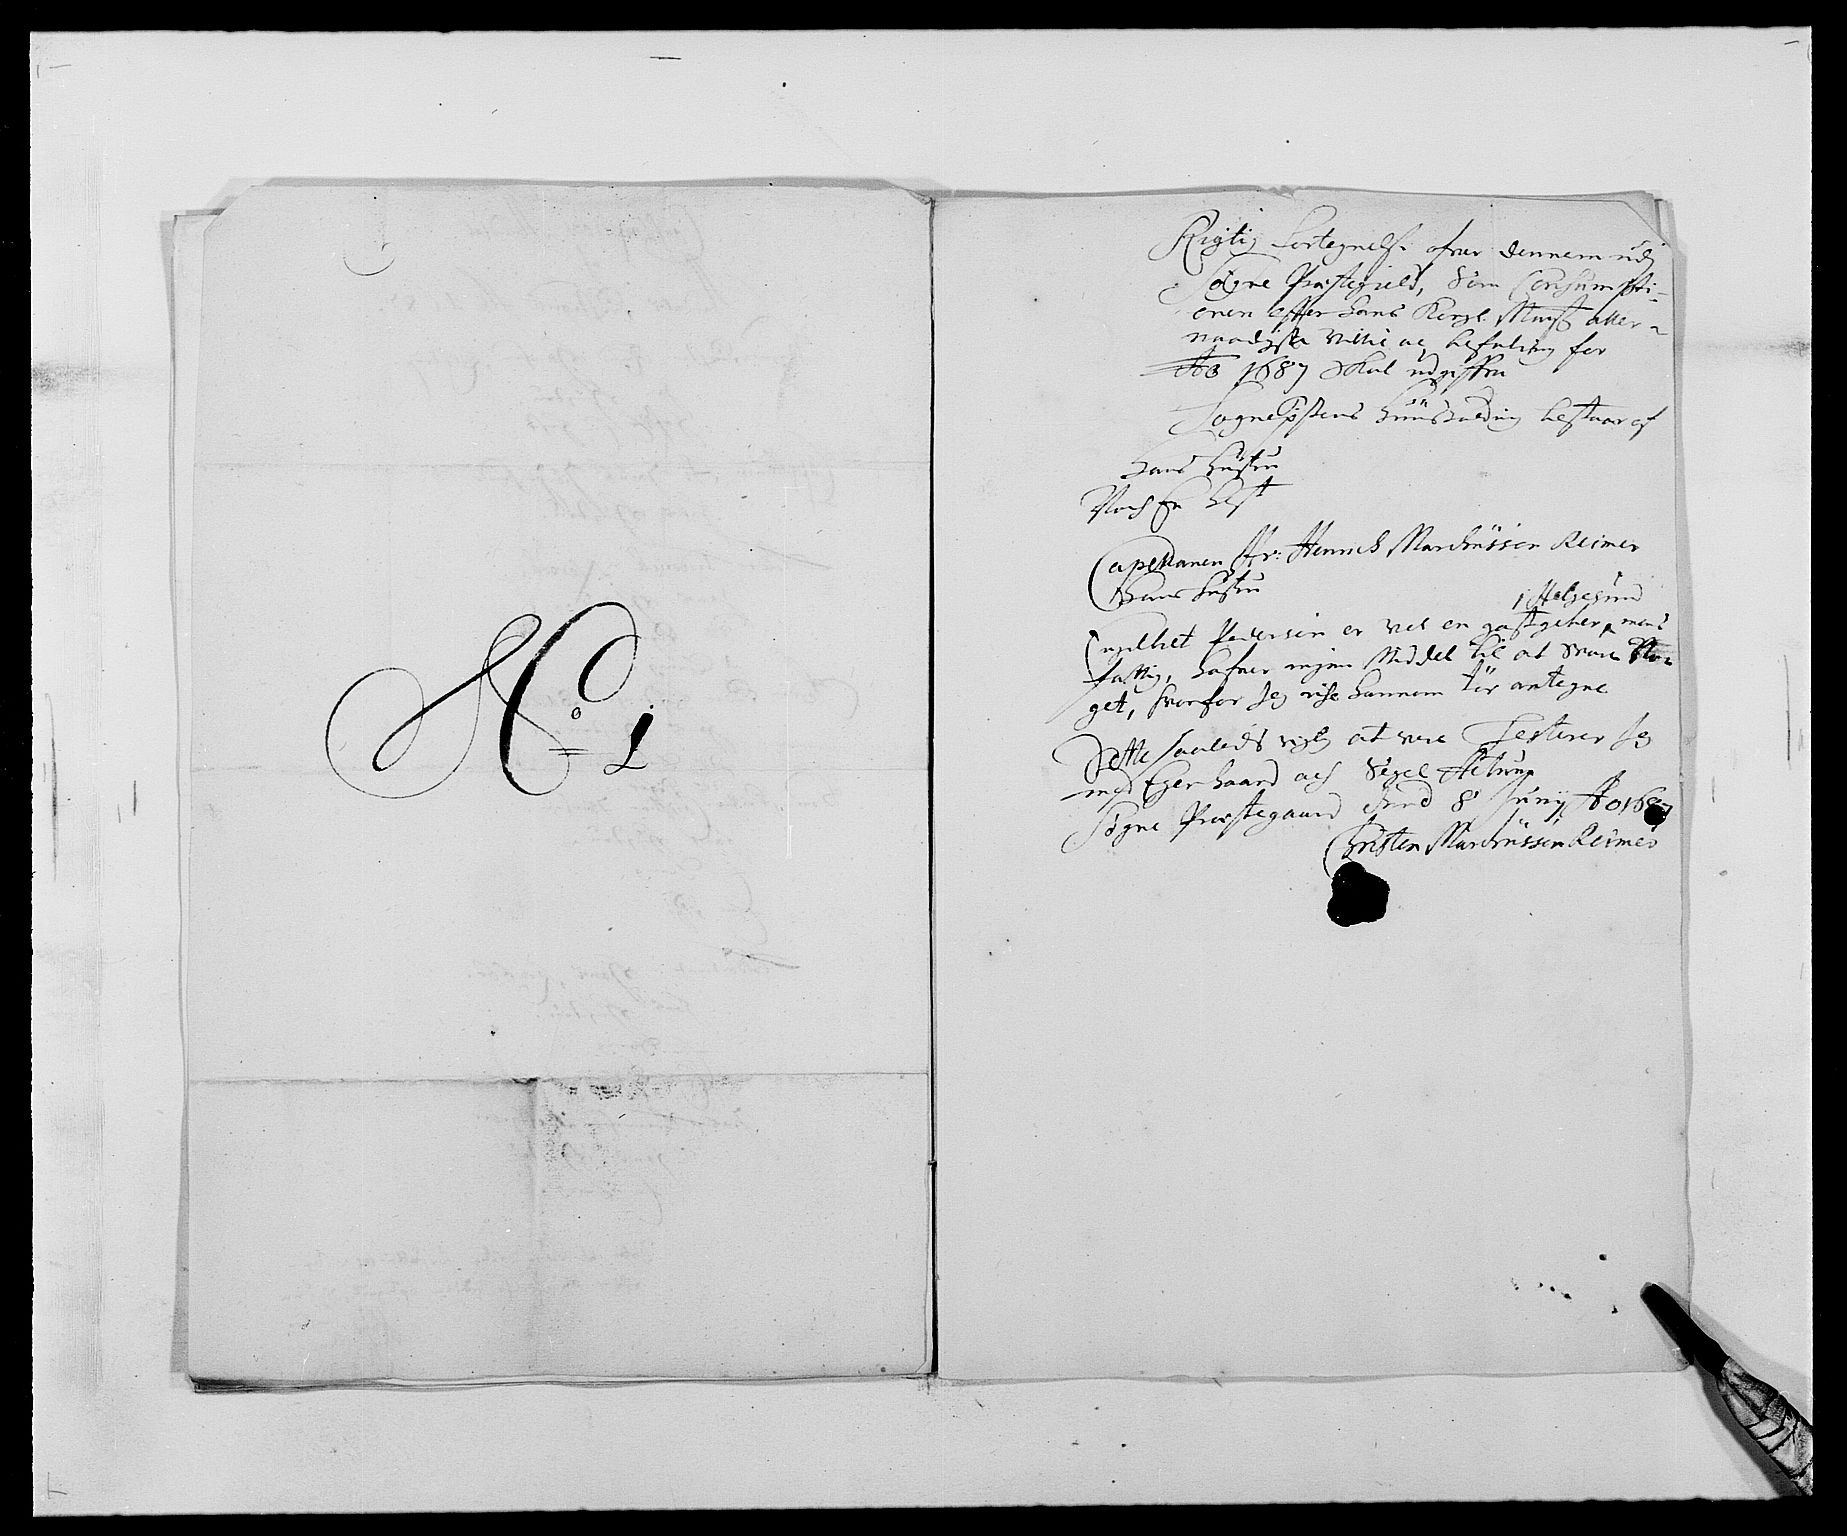 No 1
Rigtig Fortegnelse ofver dennem udj
Søgne Præstegield, Som Consumpti-
onen efter Hans Kongl. Mayst aller-
naadigste Villie oc befaling for
Ao 1687 skal udgiffve
Sognepstens Huusholding bestaar af
Hans Hustru
Noch En
Capellanen Hr: Henrich Marchussen Reimer
Hans Hustru
i Helgesund
Engelbret Pedersen er vel en gastgeber, mens
fattig, hafver ingen Middel til at svare No-
get, hvorfor Jeg icke hannem tør antegne
Dette saaledis rigtig at være Testerer Jeg
med Egen haand och Segel Actum
Søgne Præstegaard dend 8 Junij Ao 1687
Christen Marchussen Reimer